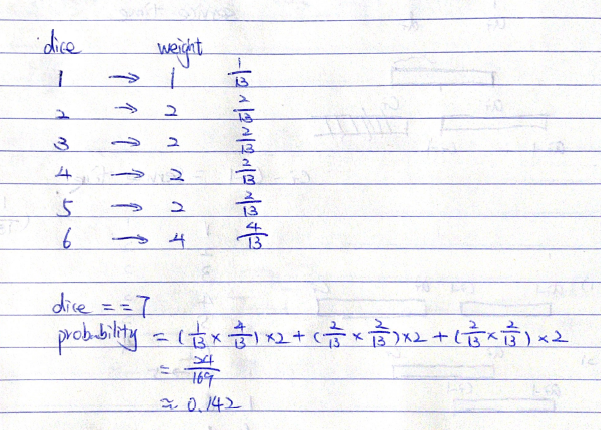 dice weight
1 → 1 1/13
2 → 2 2/13
3 → 2 2/13
4 → 2 2/13
5 → 2 2/13
6 → 4 4/13
dice == 7
probability = (1/13 × 4/13) ×2 + (2/13 × 2/13) ×2 + (2/13 × 2/13) ×2
= 24/169
≈ 0.142